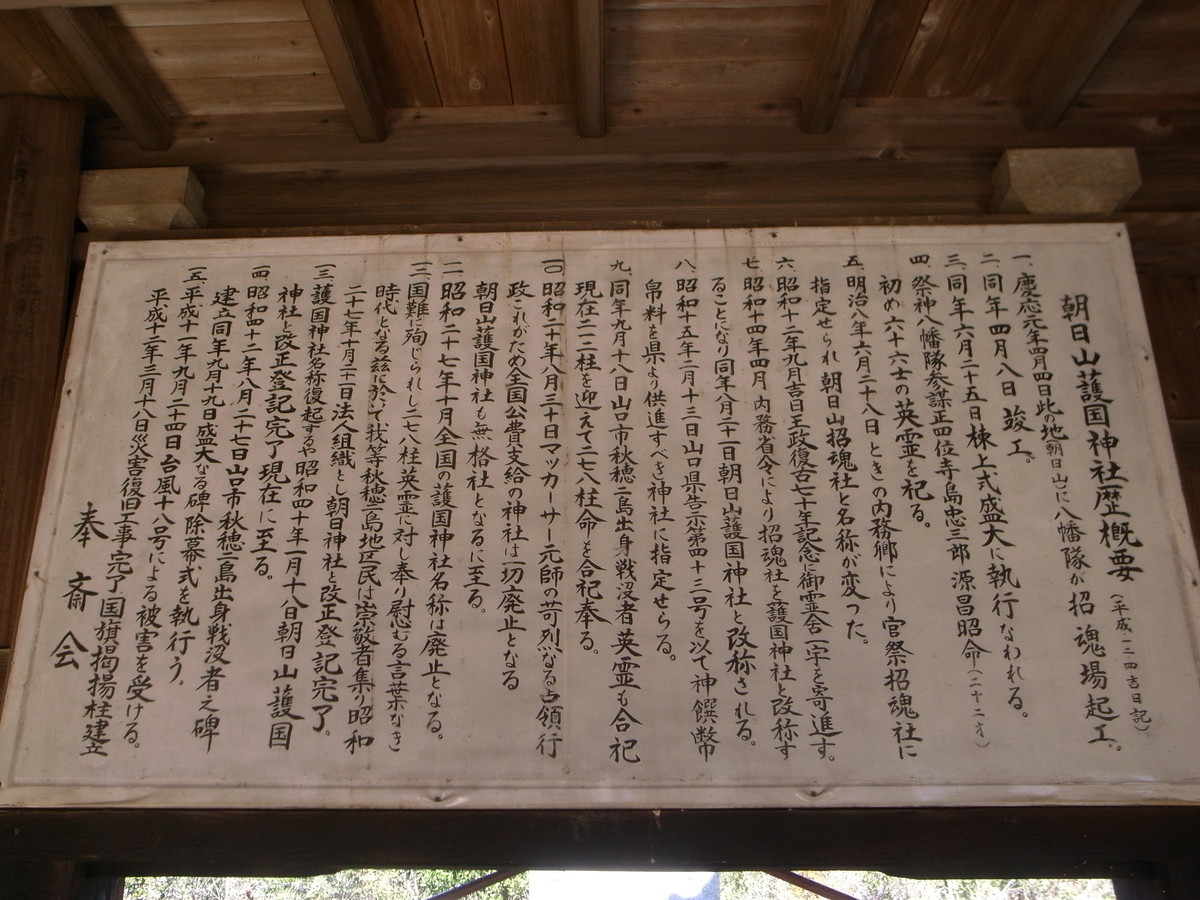 朝日山護国神社歴概要（平成一二・四吉日記）
一、慶応元年四月四日此の地朝日山に八幡隊が招魂場起工。
二、同年四月八日竣工。
三、同年六月二十五日棟上式盛大に執行なわれる。
四、祭神八幡隊参謀正四位寺島忠三郎源昌昭命（二十二才）
初め六十六士の英霊を祀る。
五、明治八年六月二十八日ときの内務卿により官祭招魂社に
指定せられ朝日山招魂社と名称が変った。
六、昭和十二年九月吉日王政復古七十年記念に御霊舎一宇を寄進す。
七、昭和十四年四月内務省令により招魂社を護国神社と改称す
ることになり同年八月二十一朝日山護国神社と改称される。
八、昭和十五年二月十三日山口県告示第四十三号を以て神饌幣
帛料を県より供進すべき神社に指定せらる。
九、同年九月十八日山口市秋穂二島出身戦没者英霊も合祀
現在二一二柱を迎えて二七八柱命を合祀奉る。
一〇、昭和二十年八月三十日マッカーサー元師の苛烈なる占領行
政これがため全国公費支給の神社は一切廃止となる
朝日山護国神社も無格社となるに至る。
一一、昭和二十七年十月全国の護国神社名称は廃止となる。
一二、国難に殉じられし二七八柱英霊に対し奉り慰むる言葉なき
時代となる茲に於いて我等秋穂二島地区民は崇敬者集り昭和
二十七年十月二十一日法人組織とし朝日神社と改正登記完了。
一三、護国神社名称復起するや昭和四十年一月十八日朝日山護国
神社と改正登記完了現在に至る。
一四、昭和四十二年八月二十七日山口市秋穂二島出身戦没者之碑
建立同年九月十九日盛大なる碑除幕式を執行う。
一五、平成十一年九月二十四日台風十八号による被害を受ける。
平成十二年三月十八日災害復旧工事完了国旗掲揚柱建立
奉斎会